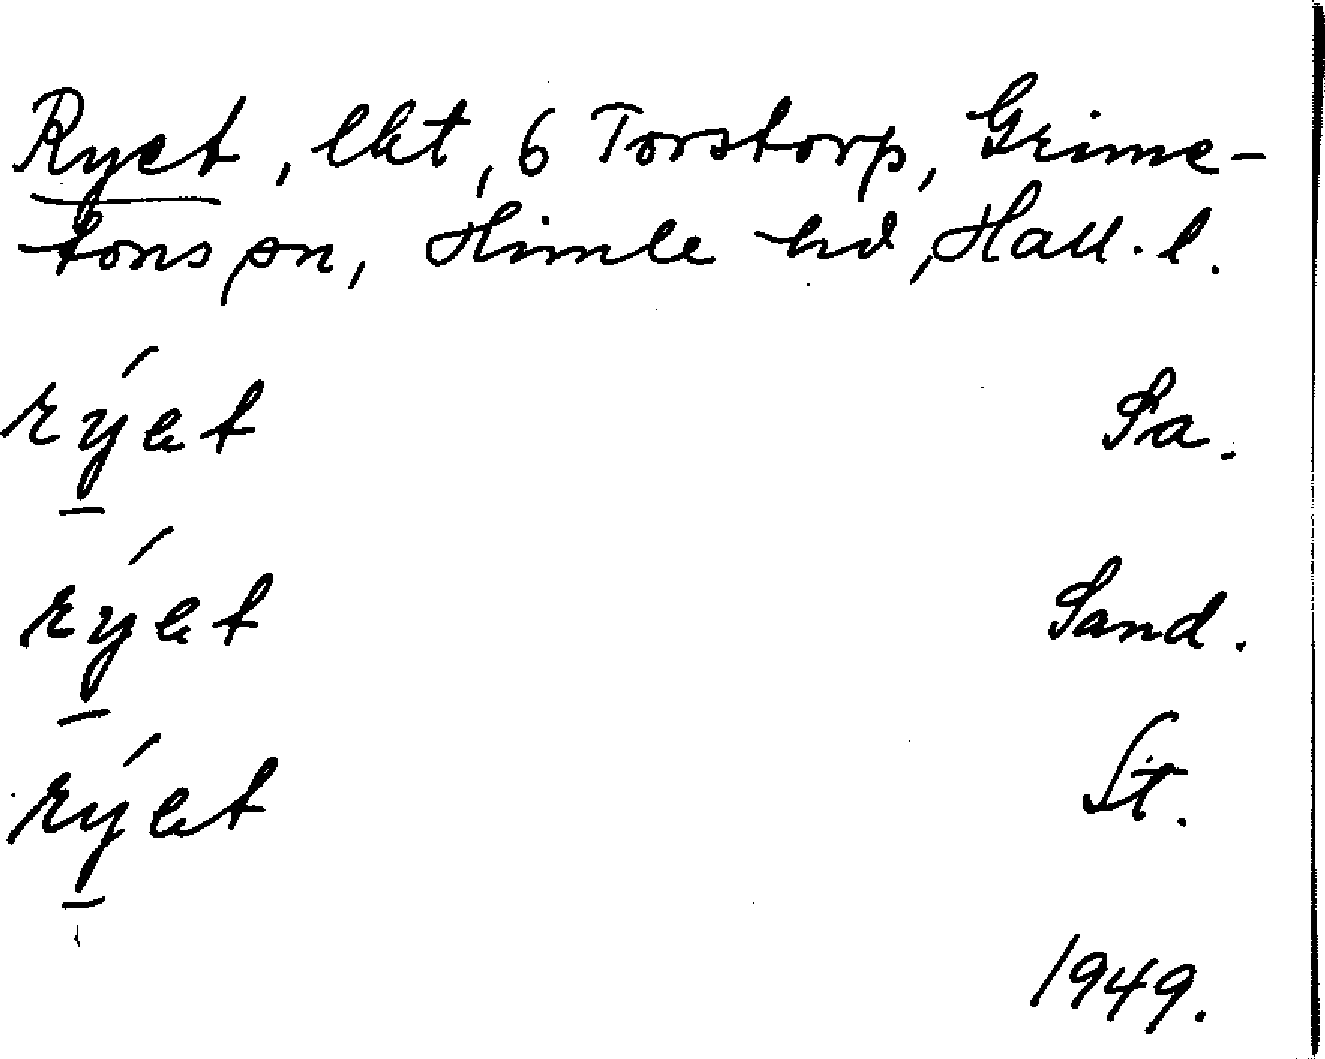 Ryet, lht, 6 Torstorp, Grime-
tons sn, Himle hd, Hall. l.
rýet Sa.
rýet Sand.
rýet St.
1949.